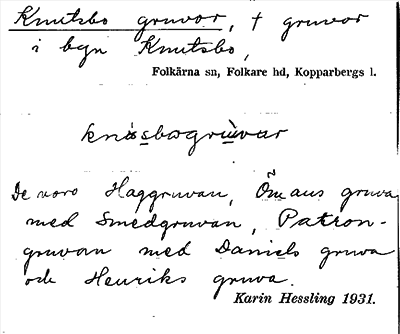 Knutsbo gruvor, † gruvor
i byn Knutsbo,
Folkärna sn, Folkare hd, Kopparbergs l.
knásbogrùvar
De voro Haggruvan, gruva
med Smedgruvan, Patron-
gruvan med Daniels gruva
och Henriks gruva.
Karin Hessling 1931.